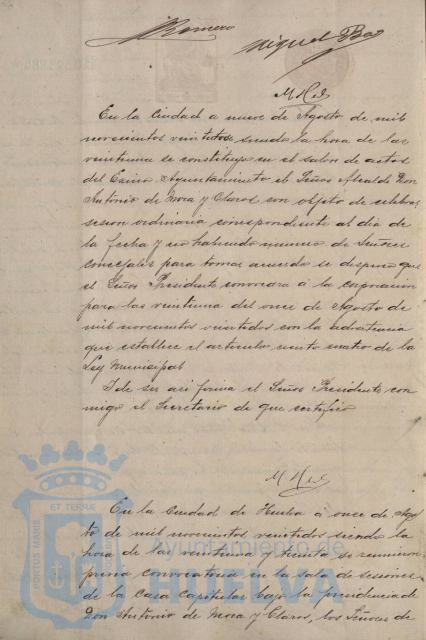 Romero
Miguel Bao
En la Ciudad a nueve de Agosto de mil
novecientos veintidos siendo la hora de las
veintiuna se constituyó en el salon de actos
del Excmo Ayuntamiento el Señor Alcalde Don
Antonio de Mora y Claros con objeto de celebrar
sesion ordinaria correspondiente al dia de
la fecha y no habiendo numero de Señores
concejales para tomar acuerdo se dispuso que
el Señor Presidente convocara á la corporacion
para las veintiuna del once de Agosto de
mil novecientos veintidos con la advertencia
que establece el articulo ciento cuatro de la
Ley Municipal
I de ser asi firma el Señor Presidente con
migo el Secretario de que certifico
En la Ciudad de Huelva á once de Agos
to de mil novecientos veintidos siendo la
hora de las veintiuna y treinta se reunieron
previa convocatoria en la sala de sesiones
de la Casa Capitular bajo la presidencia de
Don Antonio de Mora y Claros, los Señores de
PORTUS MARIS ET TERRAE
Ayuntamiento de
HUELVA